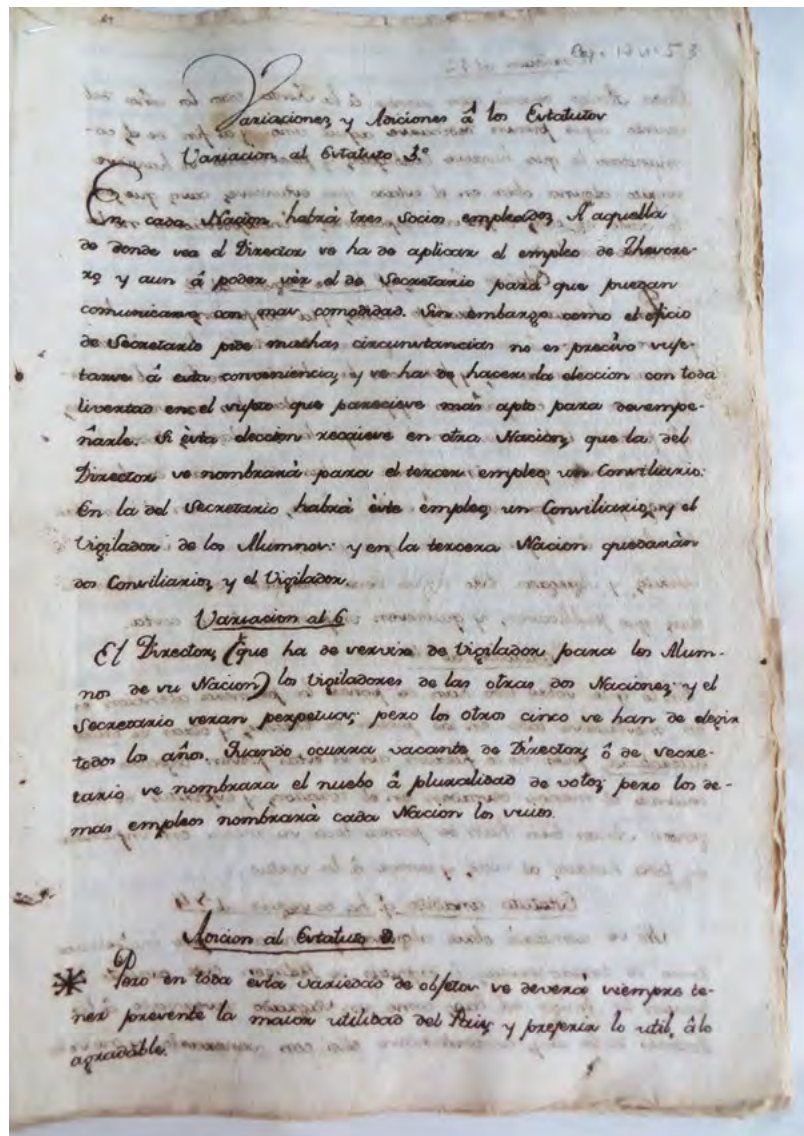 Variaciones y Adiciones â los Estatutos
Variacion al Estatuto 3.º
En cada Nacion habrá tres Socios empleados. A aquella
de donde sea el Director se ha de aplicar el empleo de Thesore-
ro, y aun â poder sèr el de Secretario para que puedan
comunicarse con mas comodidad. Sin embargo como el oficio
de Secretario pide muchas circunstancias no es preciso suje-
tarse â esta conveniencia, y se ha de hacer la eleccion con toda
livertad en el sujeto que pareciese más apto para desempe-
ñarle. Si èsta eleccion recaiese en otra Nacion, que la del
Director se nombrarà para el tercer empleo un Consiliario:
En la del Secretario habrá èste èmpleo, un Consiliario, y el
Vigilador de los Alumnos: y en la tercera Nacion quedaràn
dos Consiliarios, y el Vigilador.
Variacion al 6
El Director, (que ha de servir de Vigilador para los Alum-
nos de su Nacion) los Vigiladores de las otras dos Naciones, y el
Secretario seran perpetuos; pero los otros cinco se han de elegir
todos los años. Quando ocurra vacante de Director, ô de Secre-
tario se nombrara el nuebo â pluralidad de votos; pero los de-
mas empleos nombrarà cada Nacion los suios.
Adicion al Estatuto
Pero en toda èsta variedad de objetos se deverá siempre te-
ner presente la maior utilidad del Pais, y preferir lo util, â lo
agradable.